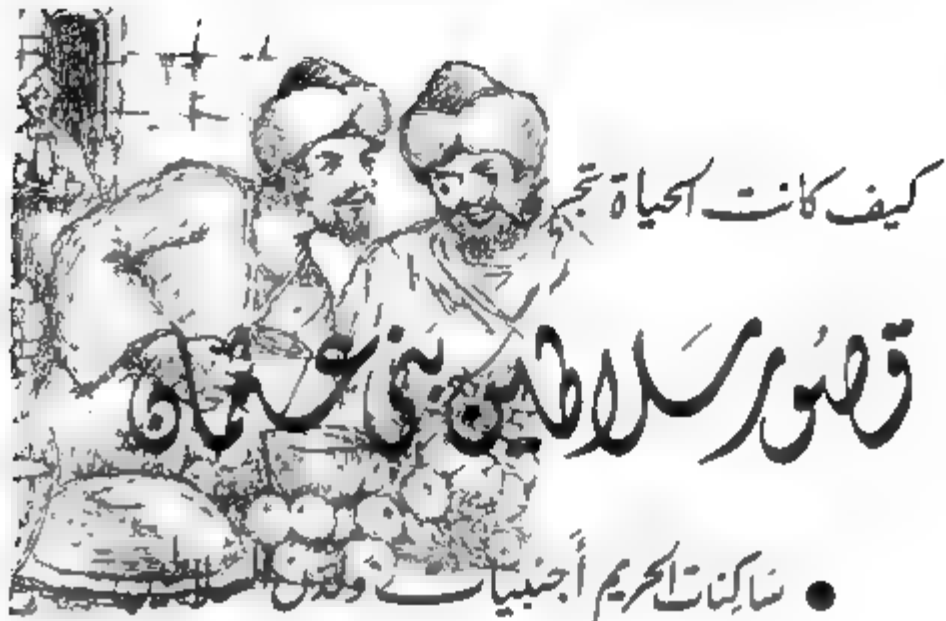 كيف كانت الحياة تجر
قصور سلاطين بني عثمان
● ساكنات الحريم أجنبيات ولدن